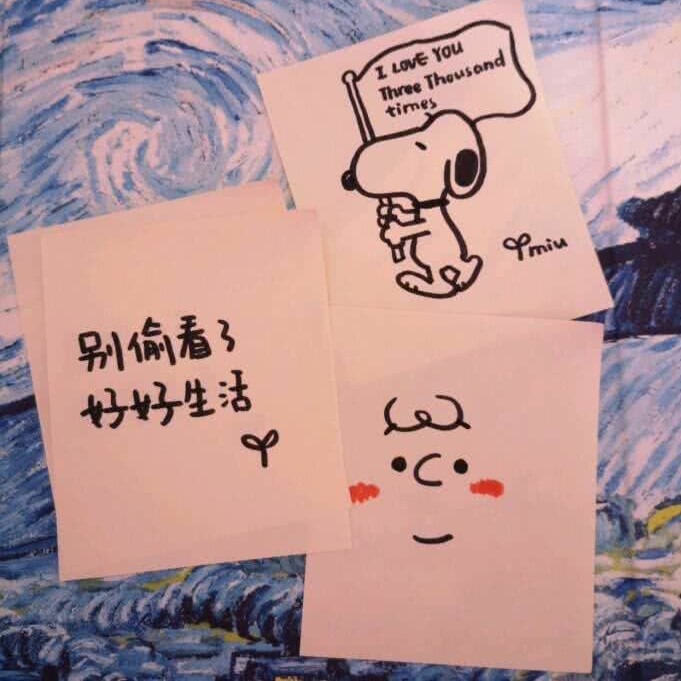 I LOVE YOU
Three Thousand
times
miu
别偷看了
好好生活